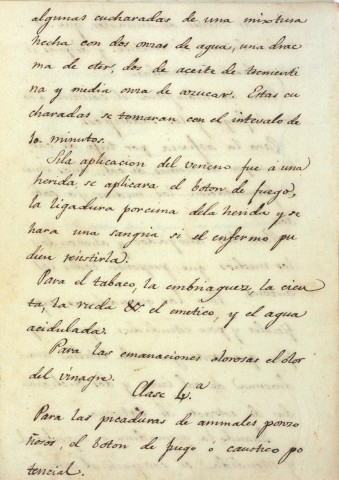 algunas cucharadas de una mixtura
hecha con dos onzas de agua, una drac
ma de eter, dos de aceite de trementi
na y media onza de azucar. Estas cu
charadas se tomaran con el intervalo de
10 minutos.
Si la aplicacion del veneno fue á una
herida se aplicará el boton de fuego,
la ligadura por cima de la herida y se
hara una sangria si el enfermo pu
diere resistirla.
Para el tabaco, la embriaguez, la cicu
ta, la ruda &c el emetico, y el agua
acidulada.
Para las emanaciones olorosas el olor
del vinagre.
Clase 4.a
Para las picaduras de animales ponzo
ñosos, el boton de fuego ó caustico po
tencial.